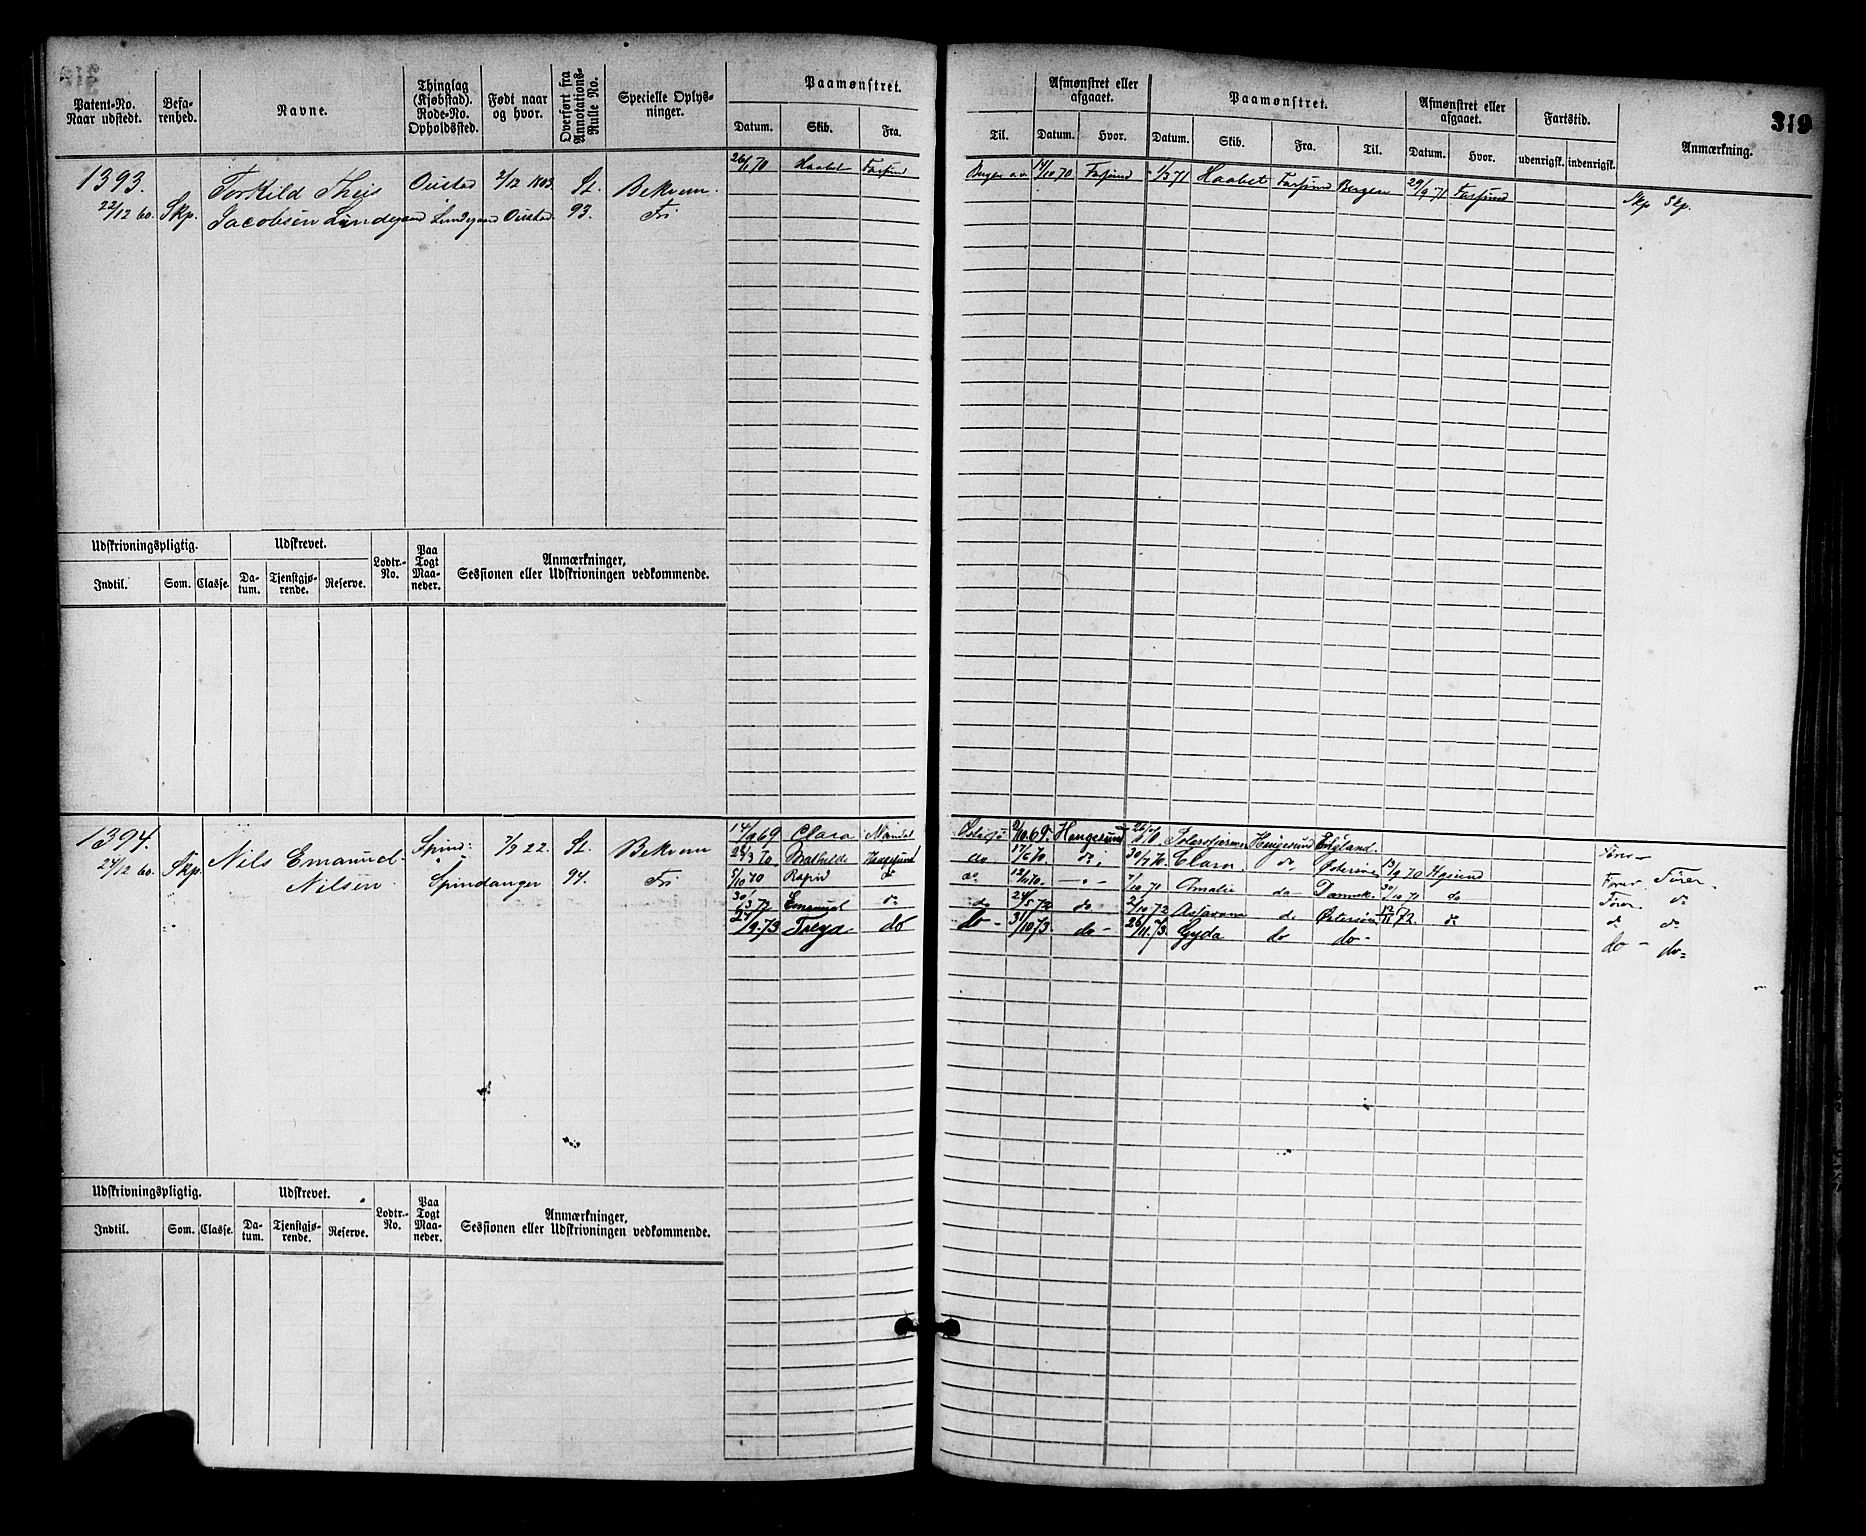 319
Patent-No. Naar udstedt.
Befarenhed.
Navne.
Thinglag (Kjøbstad). Rode-No. Opholdssted.
Født naar og hvor.
Overført fra Annotations-Rulle No.
Specielle Oplysninger.
Paamønstret.
Datum. Skib. Fra.
Til.
Afmønstret eller afgaaet.
Datum. Hvor.
Paamønstret.
Datum. Skib. Fra. Til.
Afmønstret eller afgaaet.
Datum. Hvor.
Fartstid.
udenrigsk. indenrigsk.
Anmærkning.
1393. Torkild Theis Oustad 2/12 1803 St. Bekvem.
22/12 60. Skp. Jacobsen Lundegaard Lundegaard Oustad 93. Fri
70 Haabet Farsund Bergen 70 Farsund 71 Haabet Farsund Bergen 29/9 71 Farsund Skp Skp.
Udskrivningspligtig. Udskrevet. Lodtr.-No. Paa Togt Maaneder. Anmærkninger, Sessionen eller Udskrivningen vedkommende.
Indtil. Som. Classe. Datum. Tjenstgjørende. Reserve.
1394. Nils Emanuel Spind: 7/9 22. St. Bekvem
24/12 60. Skp. Nilsen. Spindanger 94. Fri
69 Clara Mandal 69. Haugesund Haugesund England.
70 Mathilde Haugesund do 17/6 70. do. 30/7 70 Clara. do Østersøen 13/9 70 Hgsund Fører Fører.
5/10 70 Rapid do do. 70. 7/10 70 Amalie do 30/10 71 do Fører do
72 Emanuel do do 24/5 72 do 2/10 72 do Østersøen 72. do do do
9.73 Freya do do 31/10 73. do 26/11 73. Gyda do do do do
Udskrivningspligtig. Udskrevet. Lodtr.-No. Paa Togt Maaneder. Anmærkninger, Sessionen eller Udskrivningen vedkommende.
Indtil. Som. Classe. Datum. Tjenstgjørende. Reserve.